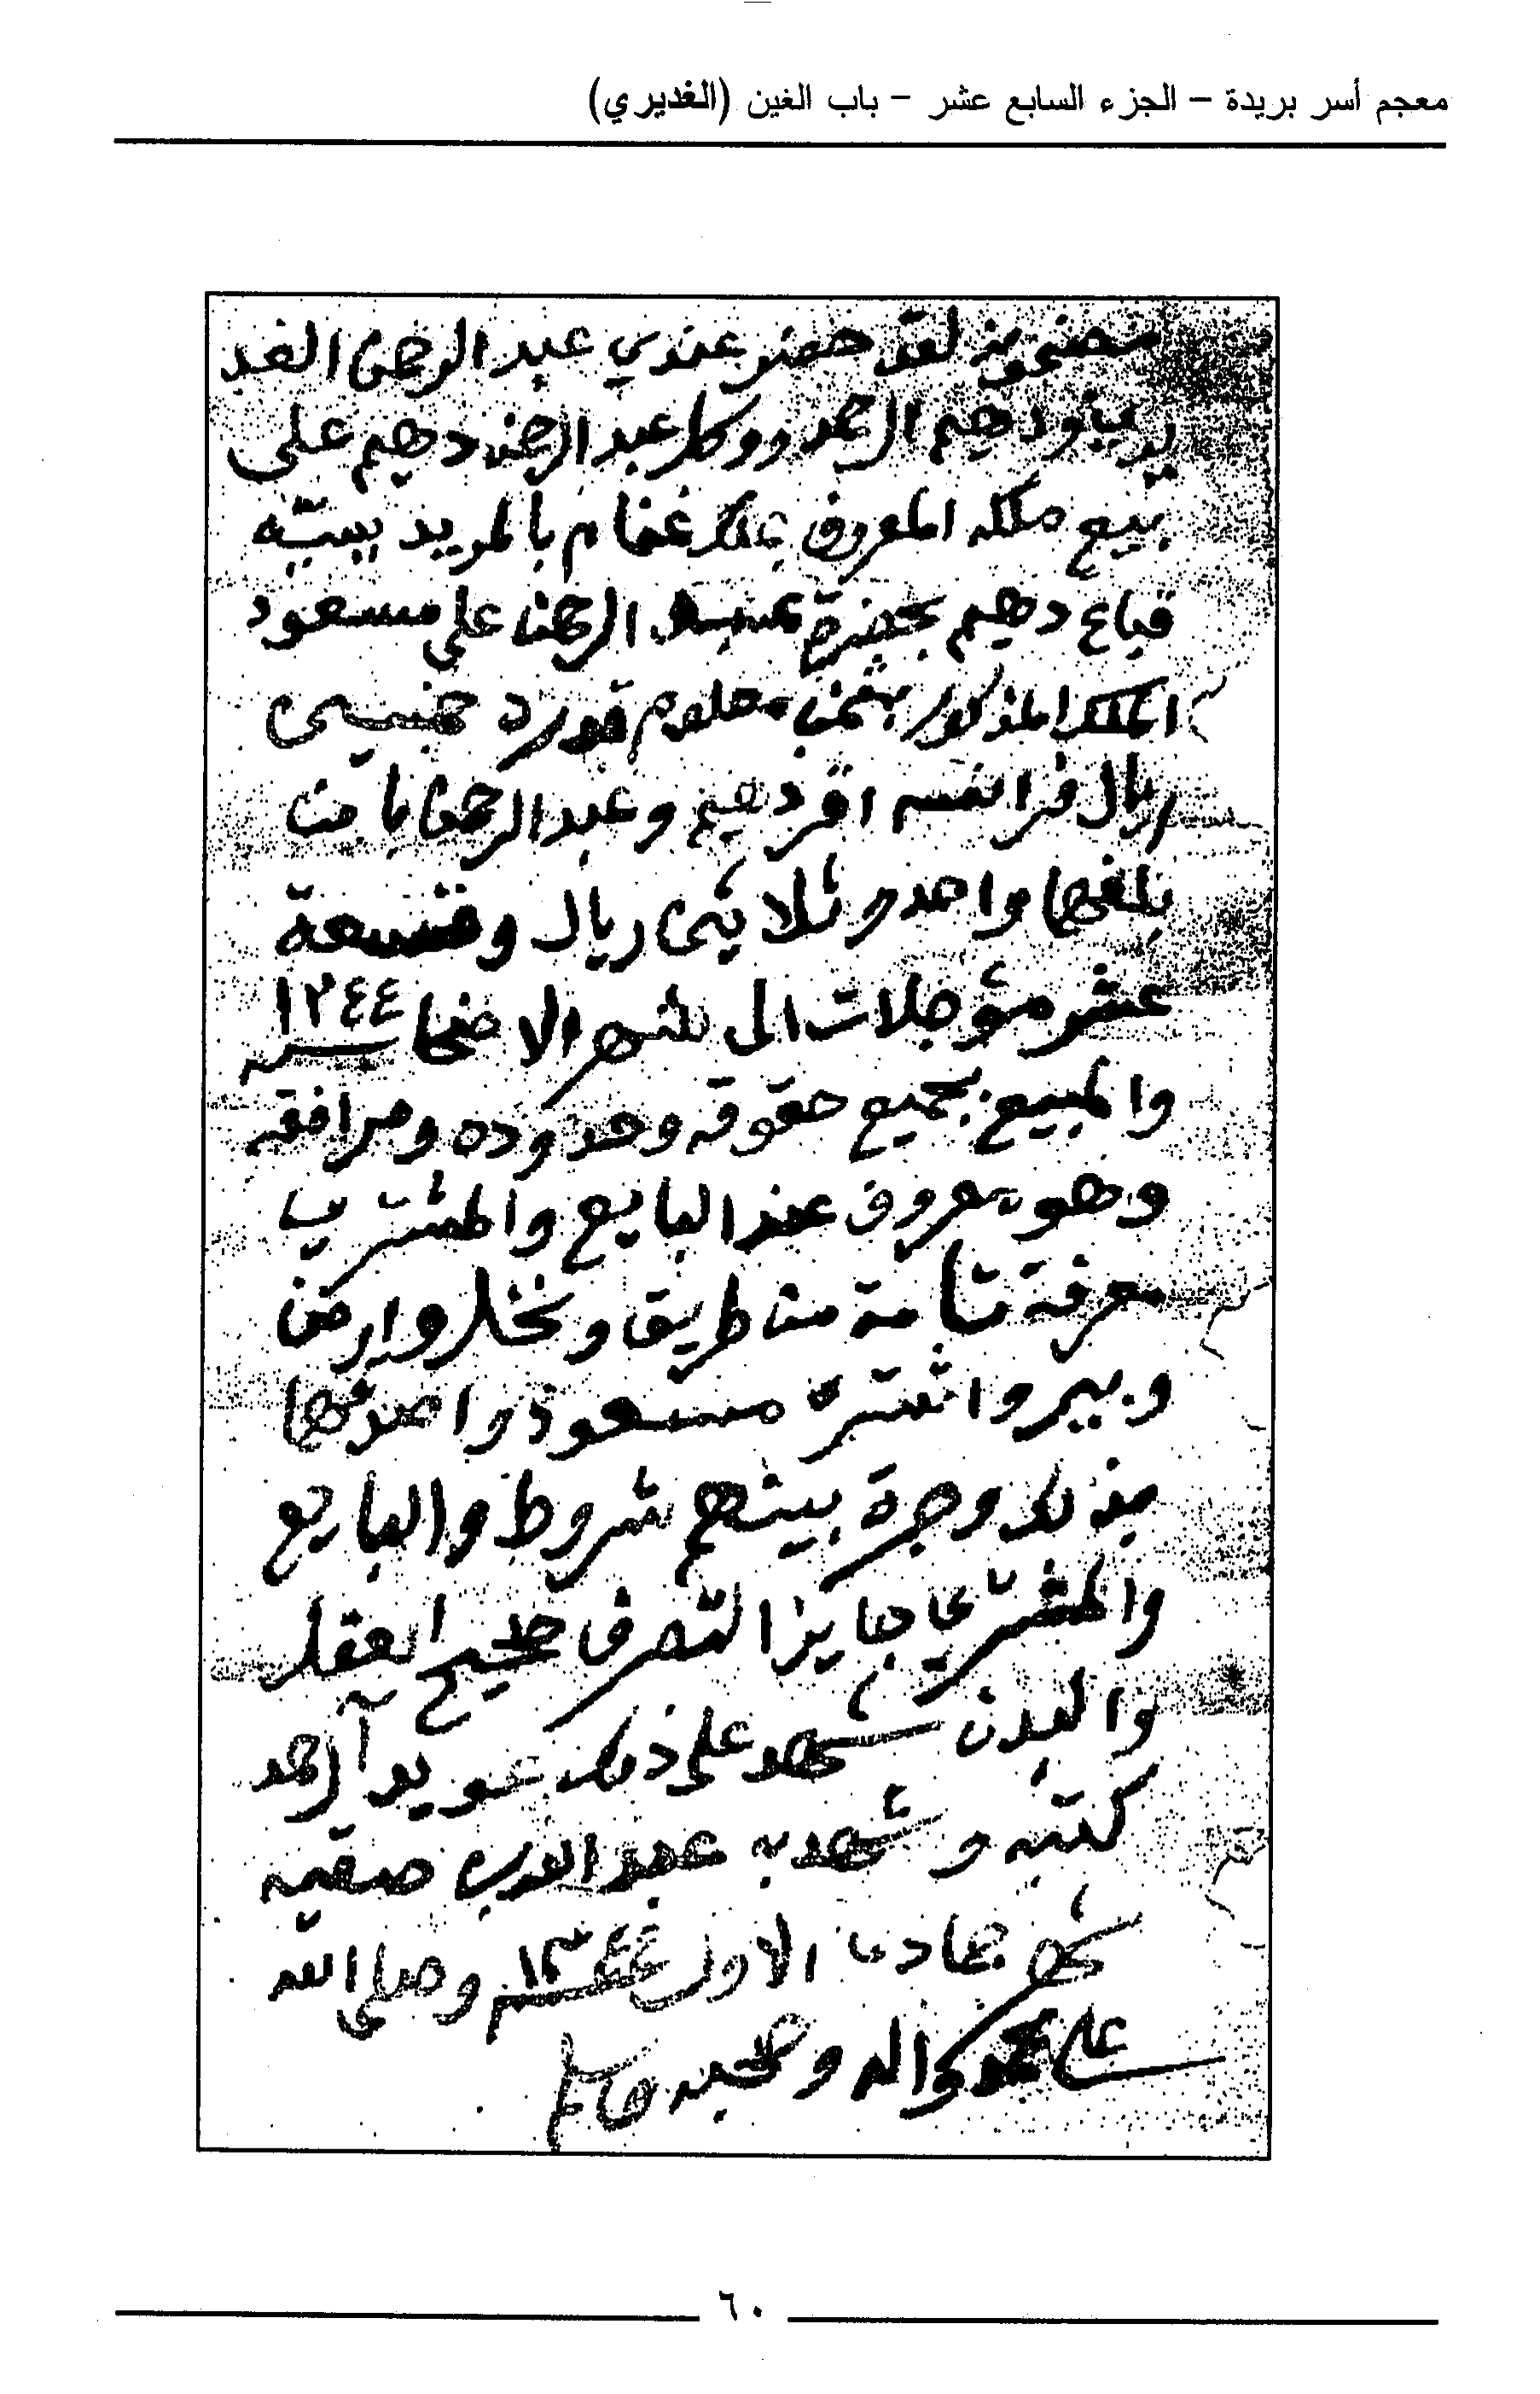 معجم أسر بريدة – الجزء السابع عشر – باب الغين (الغديري)
حضر عندي عبد الرحمن الغد
يري ودهيم الحمد ووكل عبد الرحمن دهيم على
بيع ملكه المعروف بملك غنام بالمريد
فباع دهيم بحضرة عبد الرحمن على مسعود
الملك المذكور بثمن معلوم قدره خمسين
ريال فرانسه اقر دهيم وعبد الرحمن بان
بلغهما واحد وثلاثين ريال وتسعة
عشر مؤجلات الى شهر الاضحا سنه ١٢٤٤
والمبيع بجميع حقوقه وحدوده ومرافقه
وهو معروف عند البايع والمشتري
معرفة تامة من طريق ونخل وارض
وبير واشتره مسعود
بذلك وجرة بينهم شروط والبايع
والمشتري جايز التصرف صحيح العقل
والبدن شهد على ذلك عويد آل حمد
كتبه وشهد به عبد
شهر جمادى الاول سنة ١٢٤٤ وصلى الله
على محمد واله وصحبه وسلم
٦٠